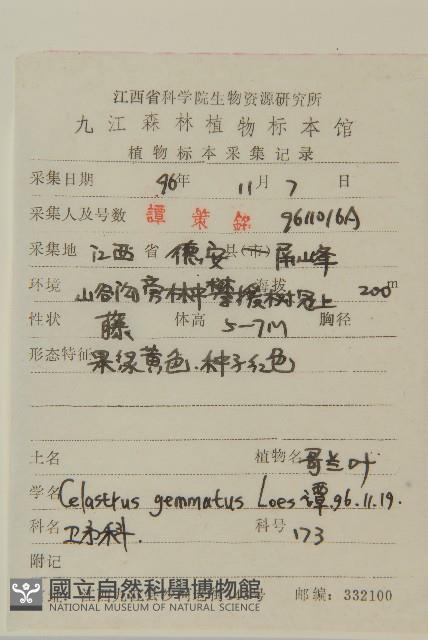 江西省科学院生物资源研究所
九江森林植物标本馆
植物标本采集记录
采集日期 96年 11月 7 日
采集人及号数 譚策銘 9611016A
采集地 江西 省 德安 县(市) 山峰
环境 山谷沟旁林中攀援树冠上 海拔 200m
性状 藤 体高 5-7M 胸径
形态特征 果绿黄色.种子红色
土名 植物名 哥兰叶
学名 Celastrus gemmatus Loes 谭.96.11.19.
科名 卫矛科. 科号 173
附记
國立自然科學博物館
NATIONAL MUSEUM OF NATURAL SCIENCE
号 邮编: 332100